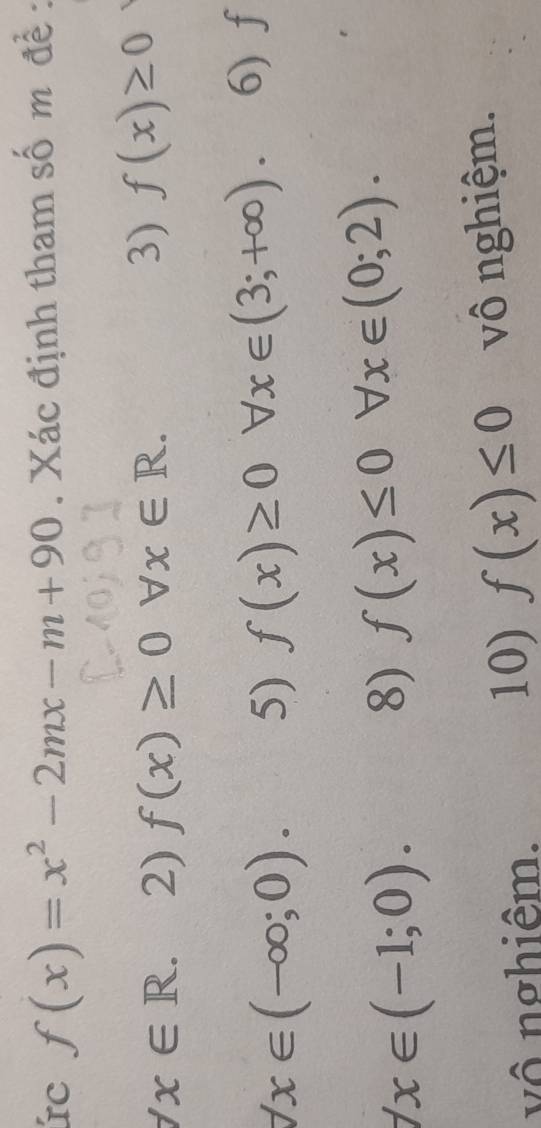 ức f(x) = x² − 2mx − m + 90. Xác định tham số m để :
[-10;9]
∀x ∈ ℝ. 2) f(x) ≥ 0 ∀x ∈ ℝ. 3) f(x) ≥ 0
∀x ∈ (−∞;0). 5) f(x) ≥ 0 ∀x ∈ (3;+∞). 6) f
∀x ∈ (−1;0). 8) f(x) ≤ 0 ∀x ∈ (0;2).
vô nghiệm. 10) f(x) ≤ 0 vô nghiệm.